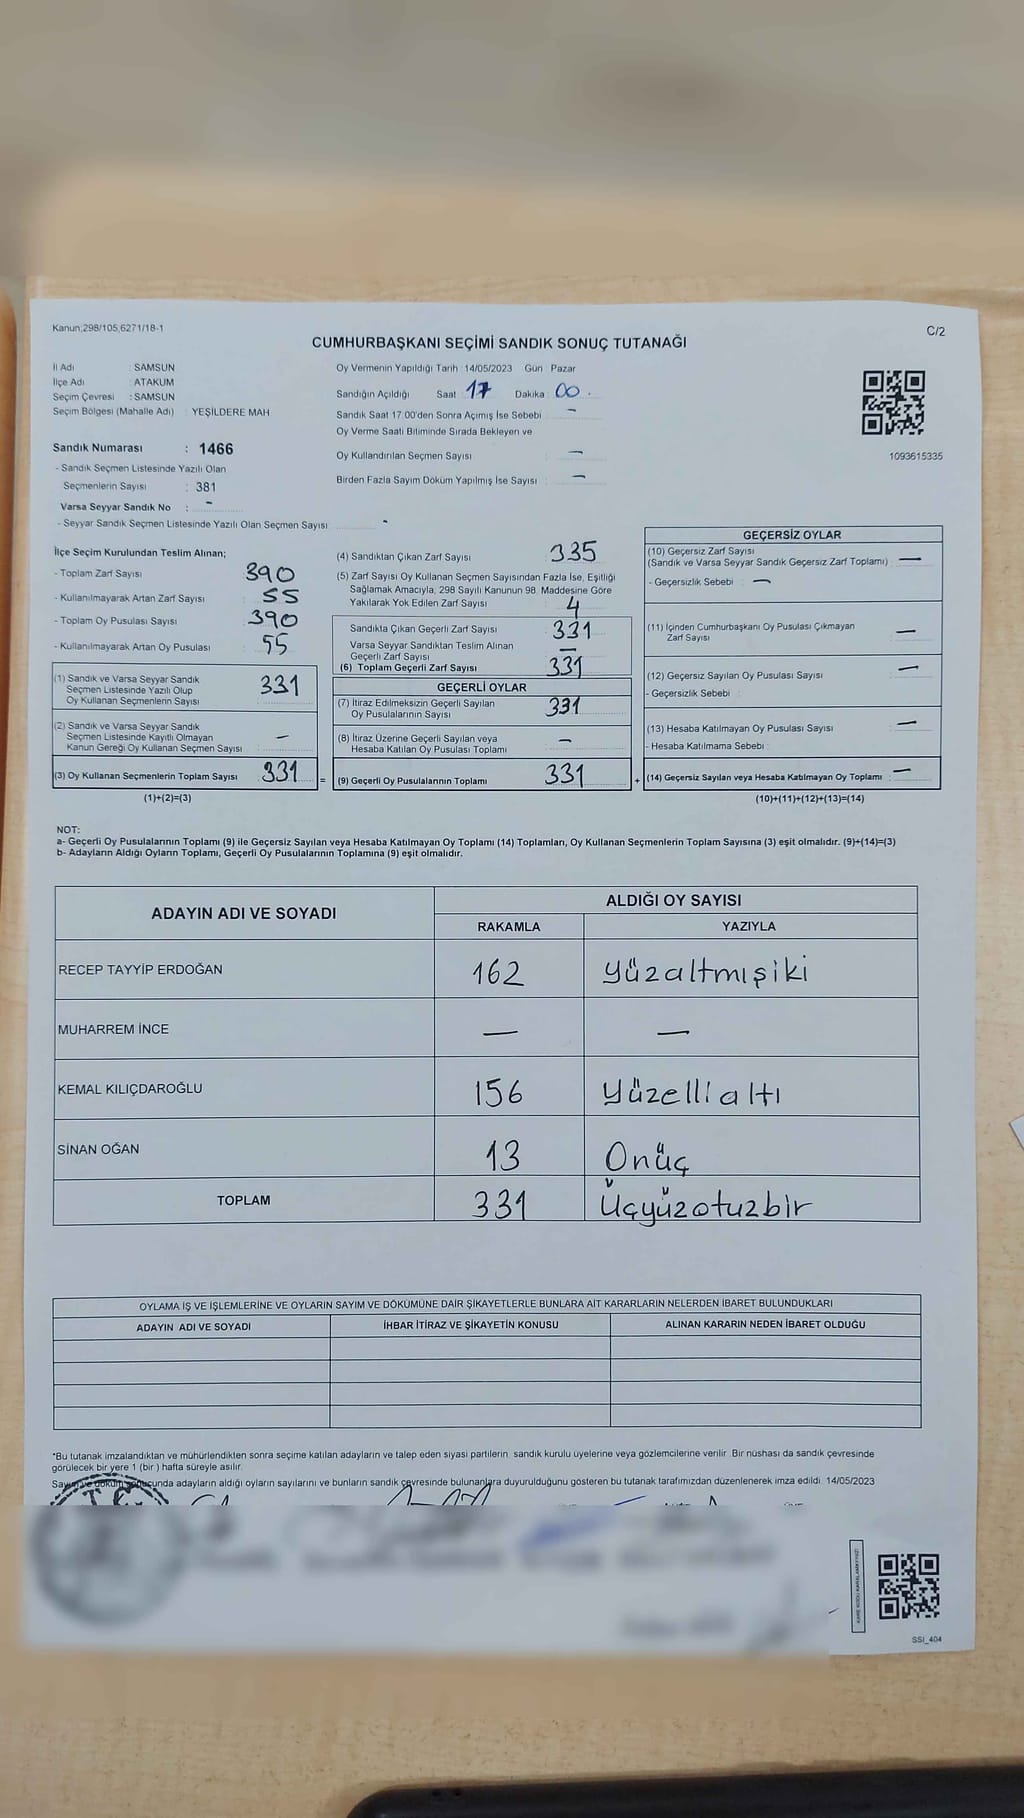 Kanun;298/105,6271/18-1
C/2
CUMHURBAŞKANI SEÇİMİ SANDIK SONUÇ TUTANAĞI
İl Adı SAMSUN
İlçe Adı ATAKUM
Seçim Çevresi : SAMSUN
Seçim Bölgesi (Mahalle Adı) : YEŞİLDERE MAH
Sandık Numarası : 1466
- Sandık Seçmen Listesinde Yazılı Olan
Seçmenlerin Sayısı : 381
Varsa Seyyar Sandık No : -
- Seyyar Sandık Seçmen Listesinde Yazılı Olan Seçmen Sayısı -
Oy Vermenin Yapıldığı Tarih 14/05/2023 Gün Pazar
Sandığın Açıldığı Saat 17 Dakika 00
Sandık Saat 17.00'den Sonra Açımış İse Sebebi -
Oy Verme Saati Bitiminde Sırada Bekleyen ve
Oy Kullandırılan Seçmen Sayısı : —
Birden Fazla Sayım Döküm Yapılmış İse Sayısı : —
1093615335
İlçe Seçim Kurulundan Teslim Alınan;
- Toplam Zarf Sayısı : 390
- Kullanılmayarak Artan Zarf Sayısı : 55
- Toplam Oy Pusulası Sayısı : 390
- Kullanılmayarak Artan Oy Pusulası : 55
(1) Sandık ve Varsa Seyyar Sandık
Seçmen Listesinde Yazılı Olup
Oy Kullanan Seçmenlerin Sayısı : 331
(2) Sandık ve Varsa Seyyar Sandık
Seçmen Listesinde Kayıtlı Olmayan
Kanun Gereği Oy Kullanan Seçmen Sayısı : —
(3) Oy Kullanan Seçmenlerin Toplam Sayısı : 331 =
(1)+(2)=(3)
(4) Sandıktan Çıkan Zarf Sayısı : 335
(5) Zarf Sayısı Oy Kullanan Seçmen Sayısından Fazla İse, Eşitliği
Sağlamak Amacıyla, 298 Sayılı Kanunun 98. Maddesine Göre
Yakılarak Yok Edilen Zarf Sayısı : 4
Sandıkta Çıkan Geçerli Zarf Sayısı : 331
Varsa Seyyar Sandıktan Teslim Alınan
Geçerli Zarf Sayısı : —
(6) Toplam Geçerli Zarf Sayısı : 331
GEÇERLİ OYLAR
(7) İtiraz Edilmeksizin Geçerli Sayılan
Oy Pusulalarının Sayısı : 331
(8) İtiraz Üzerine Geçerli Sayılan veya
Hesaba Katılan Oy Pusulası Toplamı : —
(9) Geçerli Oy Pusulalarının Toplamı : 331 +
GEÇERSİZ OYLAR
(10) Geçersiz Zarf Sayısı
(Sandık ve Varsa Seyyar Sandık Geçersiz Zarf Toplamı) : —
- Geçersizlik Sebebi : —
(11) İçinden Cumhurbaşkanı Oy Pusulası Çıkmayan
Zarf Sayısı : —
(12) Geçersiz Sayılan Oy Pusulası Sayısı : —
- Geçersizlik Sebebi :
(13) Hesaba Katılmayan Oy Pusulası Sayısı : —
- Hesaba Katılmama Sebebi :
(14) Geçersiz Sayılan veya Hesaba Katılmayan Oy Toplamı : —
(10)+(11)+(12)+(13)=(14)
NOT:
a- Geçerli Oy Pusulalarının Toplamı (9) ile Geçersiz Sayılan veya Hesaba Katılmayan Oy Toplamı (14) Toplamları, Oy Kullanan Seçmenlerin Toplam Sayısına (3) eşit olmalıdır. (9)+(14)=(3)
b- Adayların Aldığı Oyların Toplamı, Geçerli Oy Pusulalarının Toplamına (9) eşit olmalıdır.
ADAYIN ADI VE SOYADI
ALDIĞI OY SAYISI
RAKAMLA YAZIYLA
RECEP TAYYİP ERDOĞAN 162 yüzaltmışiki
MUHARREM İNCE — —
KEMAL KILIÇDAROĞLU 156 Yüzellialtı
SİNAN OĞAN 13 Onüç
TOPLAM 331 Üçyüzotuzbir
OYLAMA İŞ VE İŞLEMLERİNE VE OYLARIN SAYIM VE DÖKÜMÜNE DAİR ŞİKAYETLERLE BUNLARA AİT KARARLARIN NELERDEN İBARET BULUNDUKLARI
ADAYIN ADI VE SOYADI İHBAR İTİRAZ VE ŞİKAYETİN KONUSU ALINAN KARARIN NEDEN İBARET OLDUĞU
*Bu tutanak imzalandıktan ve mühürlendikten sonra seçime katılan adayların ve talep eden siyasi partilerin sandık kurulu üyelerine veya gözlemcilerine verilir. Bir nüshası da sandık çevresinde
görülecek bir yere 1 (bir ) hafta süreyle asılır.
adayların aldığı oyların sayılarını ve bunların sandık çevresinde bulunanlara duyurulduğunu gösteren bu tutanak tarafımızdan düzenlenerek imza edildi. 14/05/2023
SSİ_404